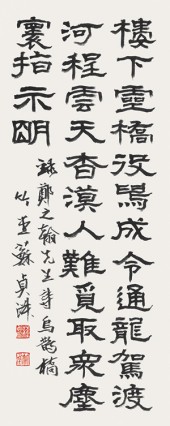 樓下靈橋役鵲成令通龍駕渡
河程雲天杳漠人難覓取衆塵
寰指示明
錄鄭之翰先生詩烏鵲橋
竹 蘇貞洙